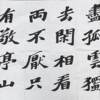 盡孤雲獨
去閑相看
兩不厭只
有敬亭山